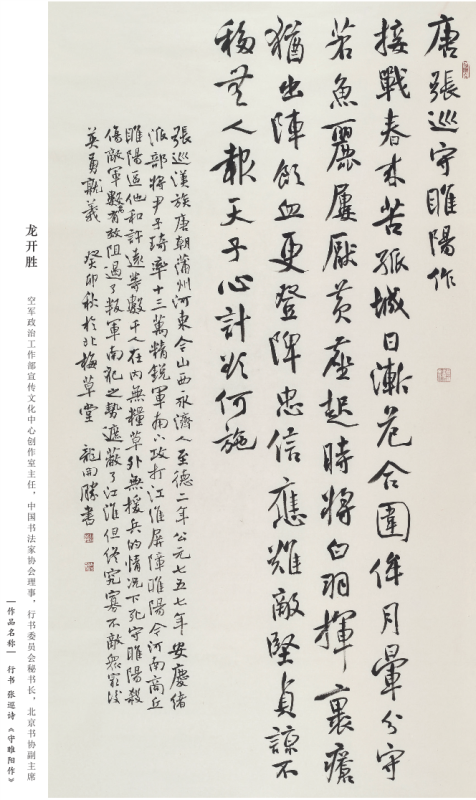 唐張巡守睢陽作
接戰春來苦孤城日漸危合圍侔月暈分守
若魚麗屢厭黃塵起時將白羽揮裹瘡
猶出陣飲血更登陴忠信應難敵堅貞諒不
移無人報天子心計欲何施
張巡漢族唐朝蒲州河東今山西永濟人至德二年公元七五七年安慶緒
派部將尹子琦率十三萬精銳軍南下攻打江淮屏障睢陽今河南商丘
睢陽區他和許遠等數千人在內無糧草外無援兵的情況下死守睢陽殺
傷敵軍數萬有效阻遏了叛軍南犯之勢遮蔽了江淮但終究寡不敵眾
英勇就義 癸卯秋於北梅草堂 龍開勝書
龙开胜
空军政治工作部宣传文化中心创作室主任，中国书法家协会理事，行书委员会秘书长，北京书协副主席
|作品名称| 行书 张巡诗《守睢阳作》